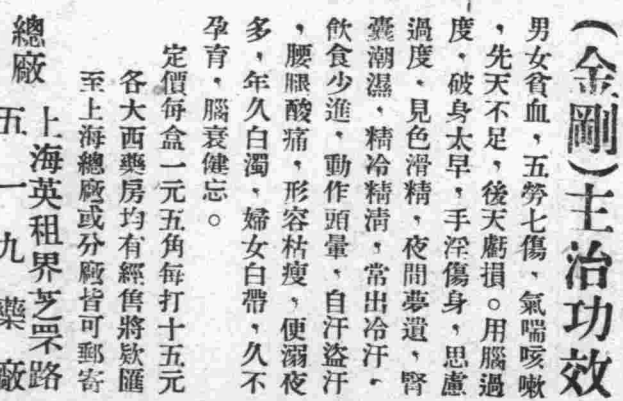 （金剛）主治功效
男女貧血，五勞七傷、氣喘咳嗽
，先天不足，後天虧損。用腦過
度、破身太早，手淫傷身，思慮
過度、見色滑精，夜間夢遺，腎
囊潮濕，精冷精清，常出冷汗，
飲食少進，動作頭暈，自汗盜汗
，腰腿酸痛，形容枯瘦，便溺夜
多，年久白濁，婦女白帶，久不
孕育，腦衰健忘。
定價每盒一元五角每打十五元
各大西藥房均有經售將欵匯
至上海總廠或分廠皆可郵寄
總廠 上海英租界芝罘路
五一九藥廠